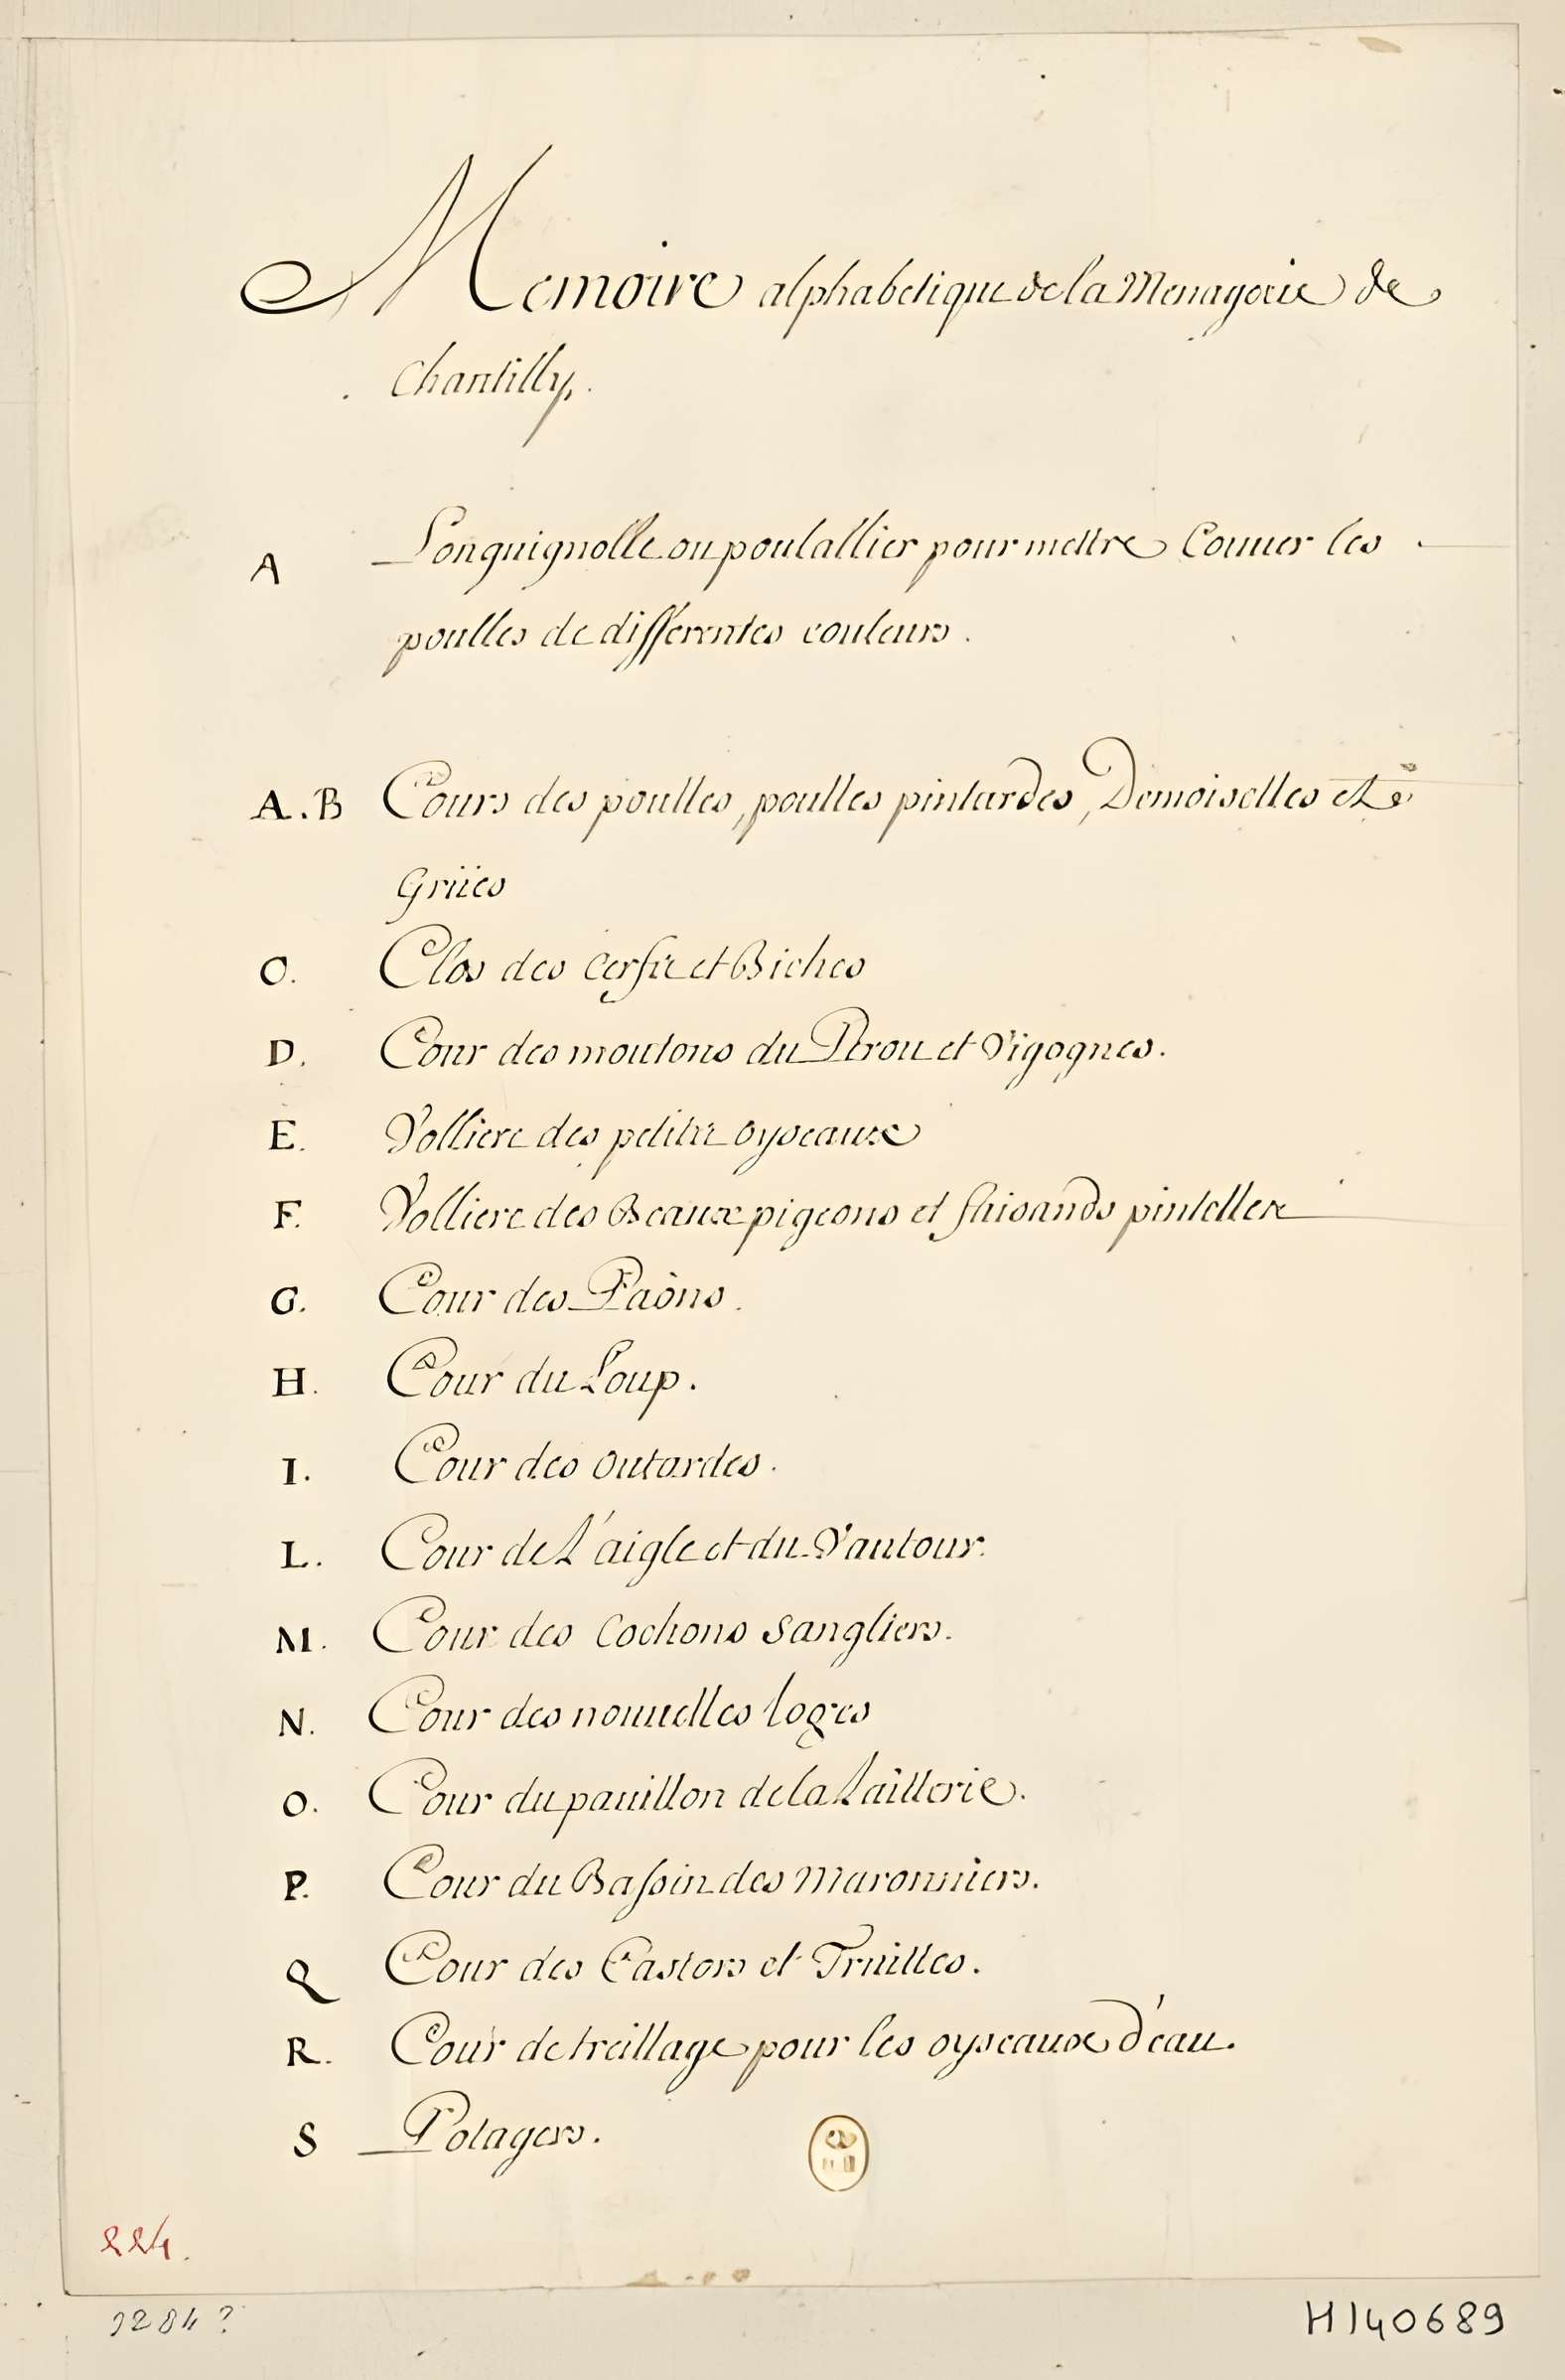 Memoire alphabetique de la Menagerie de
Chantilly.
A Longuignolle ou poulallier pour mettre Couuer les
poulles de differentes couleurs.
A.B Cours des poulles, poulles pintardes, Demoiselles et
Grües
C. Clos des Cerfs et Biches
D. Cour des moutons du Perou et Vigognes.
E. Volliere des petits oyseaux
F. Volliere des Beaux pigeons et faisands
G. Cour des Paôns.
H. Cour du Loup.
I. Cour des outardes.
L. Cour de L'aigle et du Vautour.
M. Cour des Cochons Sangliers.
N. Cour des nouuelles loges
O. Cour du pauillon de la Laitterie.
P. Cour du Bassin des Maronniers.
Q Cour des Castors et Truittes.
R. Cour de treillage pour les oyseaux d'eau.
S Potagers.
224.
H140689